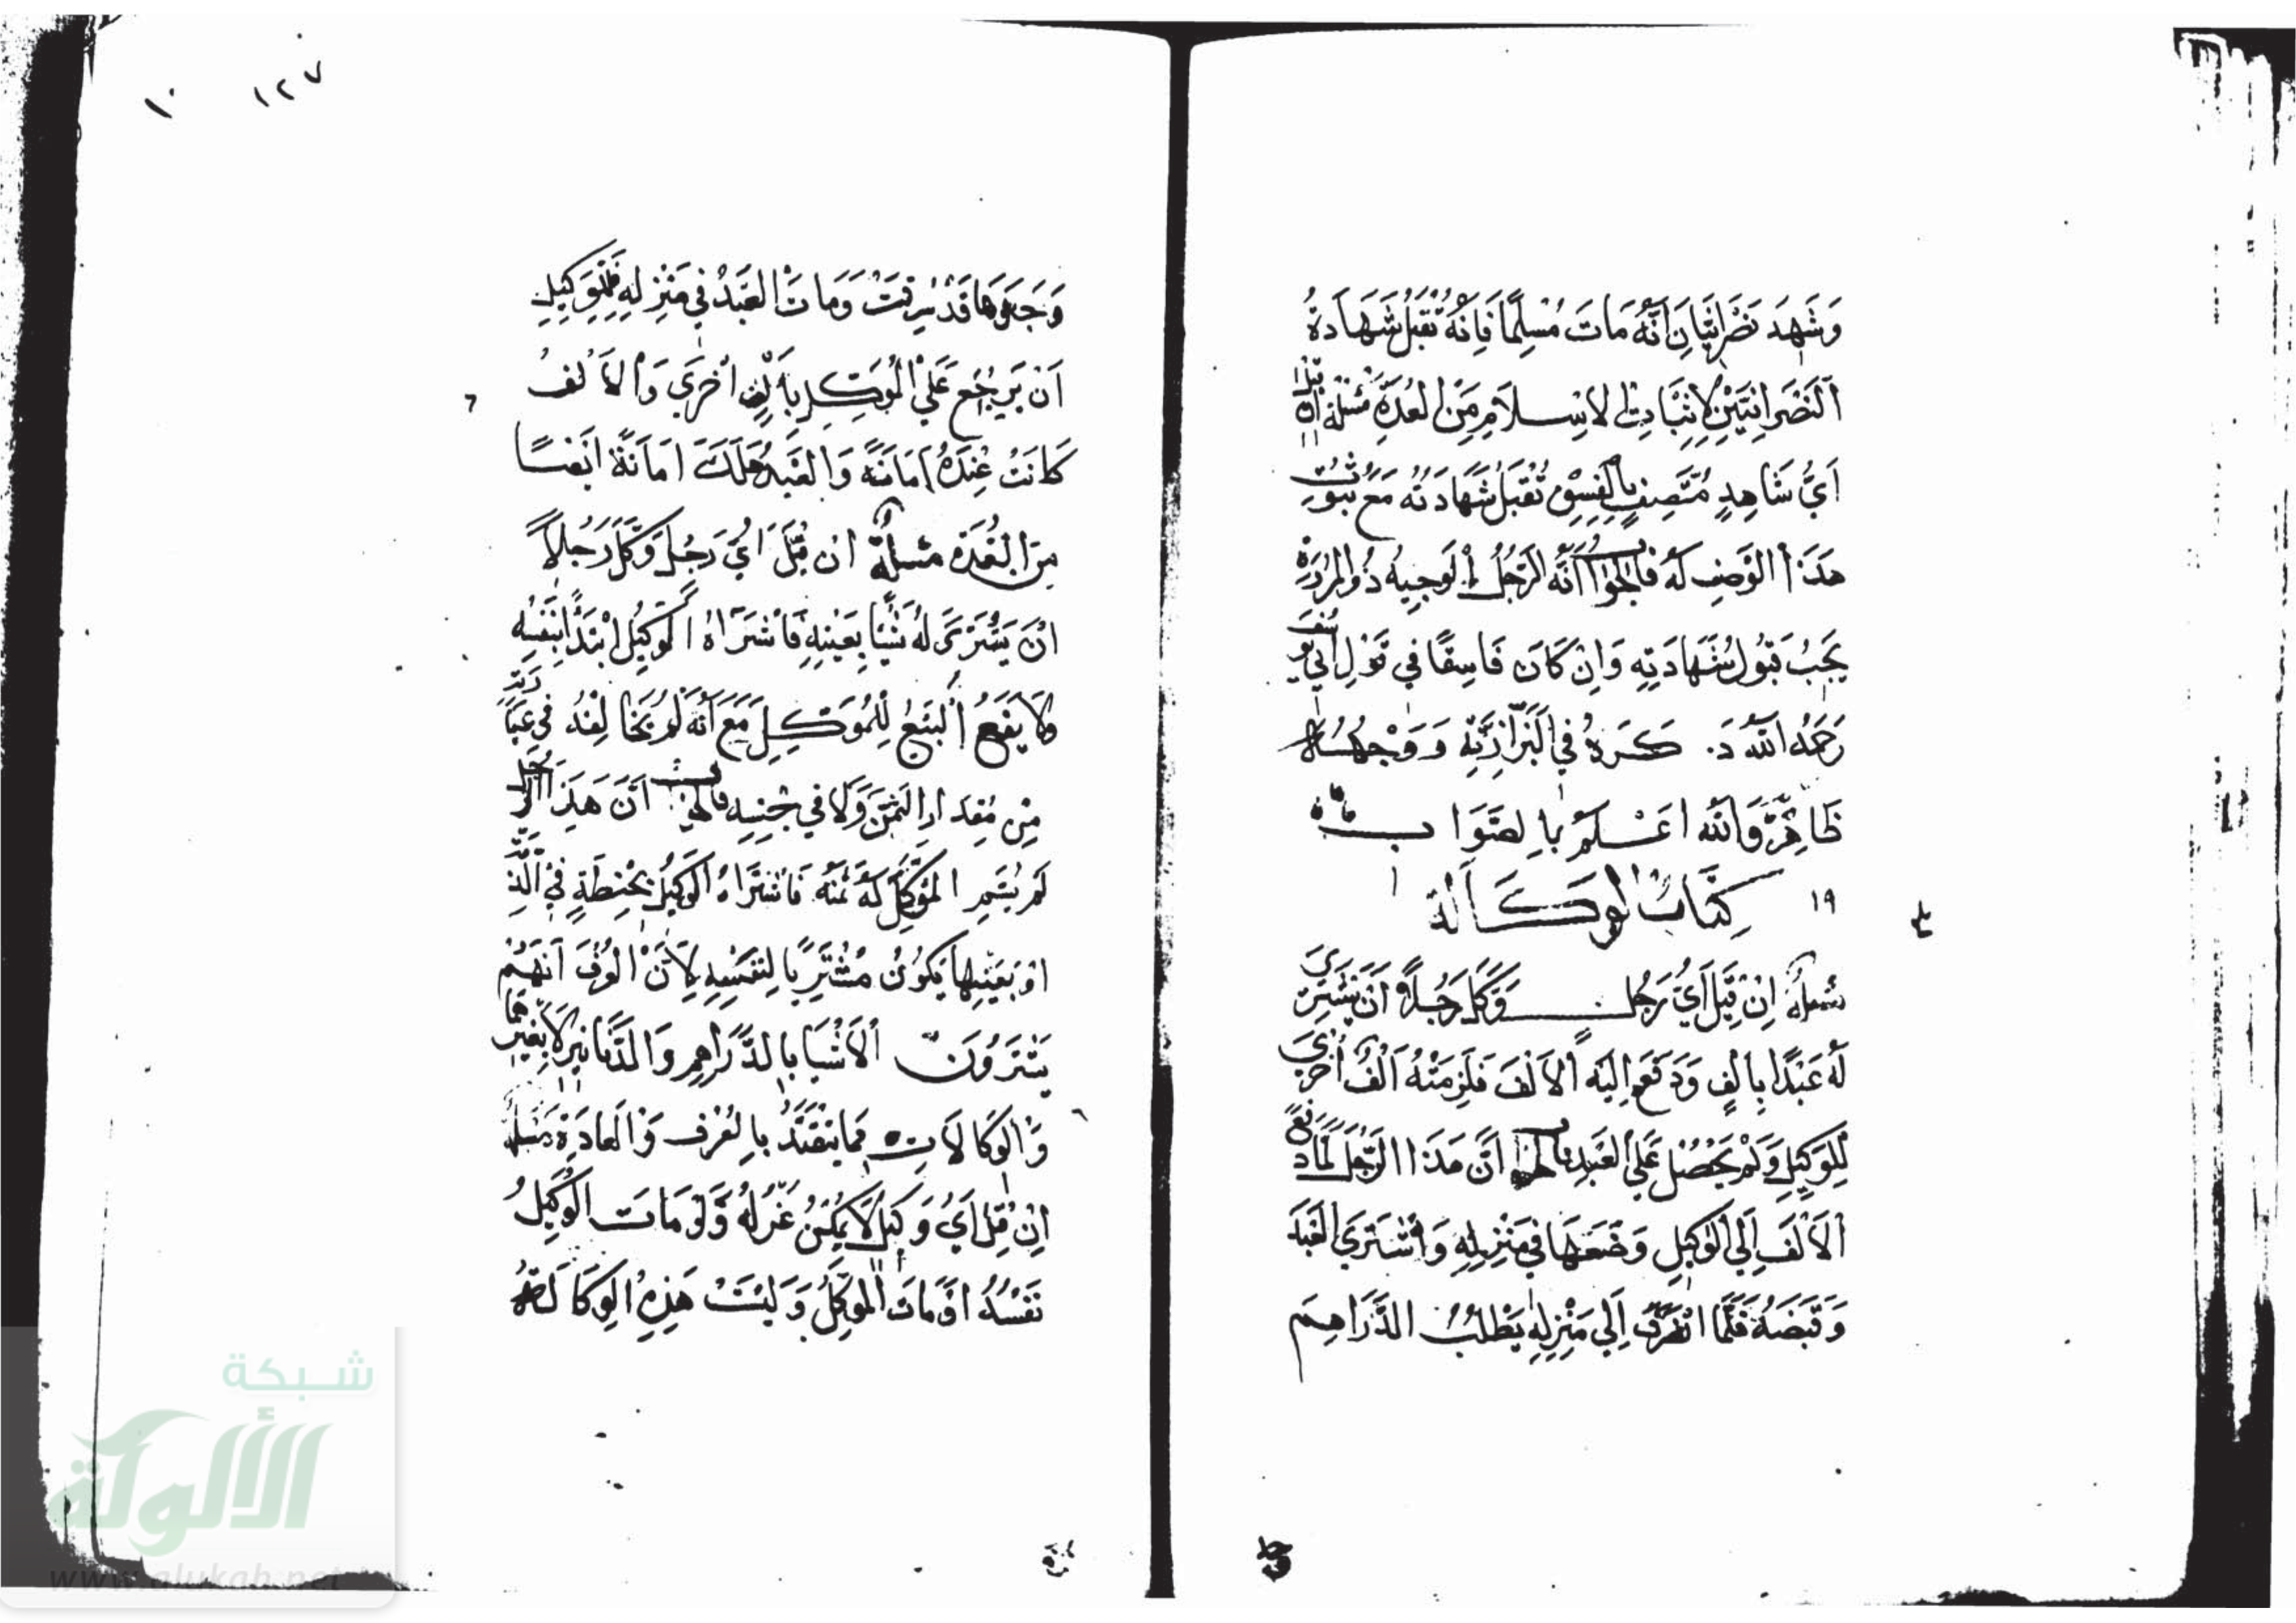 وَشَهِدَ نَصْرَانِيَّانِ أَنَّهُ مَاتَ مُسْلِمًا فَإِنَّهُ تُقْبَلُ شَهَادَةُ
النَّصْرَانِيَّيْنِ لِإِثْبَاتِ الاسْلَامِ مِنَ العُدَّةِ مسئلة ان قيل
اَيُّ شَاهِدٍ مُتَّصِفٍ بِالْفِسْقِ تُقْبَلُ شَهَادَتُه مَعَ ثُبُوتِ
هَذَا الوَصْفِ لَهُ فَالجَوَابُ أَنَّه الرَّجُلُ الوَجِيهُ ذُو المُرُوَّةِ
يَجِبُ قَبُولُ شَهَادَتِهِ وَاِنْ كَانَ فَاسِقًا فِي قَوْلِ اَبِي يُوسُفَ
رَحِمَهُ اللّٰهُ ذَكَرَهُ فِي البَزَّازِيَّةِ وَوَجْهُهُ
ظَاهِرٌ وَاللّٰه اَعْلَمُ بِالصَّوَابِ
١٩ كِتَابُ الوَكَالَة
مسئلة اِنْ قِيلَ اَيُّ رَجُلٍ وَكَّلَ رَجُلًا اَنْ يَشْتَرِيَ
لَهُ عَبْدًا بِاَلْفٍ وَدَفَعَ اِلَيْهِ الاَلْفَ فَلَزِمَتْهُ اَلْفٌ اُخْرَى
لِلوَكِيلِ وَلَمْ يَحْصُلْ عَلَى العَبْدِ فالجواب اَنَّ هَذَا الرَّجُلَ لَمَّا دَفَعَ
الاَلْفَ اِلَى الوَكِيلِ وَضَعَهَا فِي مَنْزِلِهِ وَاشْتَرَى العَبْدَ
وَقَبَضَهُ فَلَمَّا انْصَرَفَ اِلَى مَنْزِلِهِ يَطْلُبُ الدَّرَاهِمَ
١٢٧ ١٠
وَجَدَهَا قَدْ سُرِقَتْ وَمَاتَ العَبْدُ فِي مَنْزِلِهِ فَلِلْوَكِيلِ
اَنْ يَرْجِعَ عَلَى المُوَكِّلِ بِاَلْفٍ اُخْرَى وَالاَلْفُ
كَانَتْ عِنْدَهُ اَمَانَةً وَالعَبْدُ هَلَكَ اَمَانَةً اَيْضًا
مِنَ العُدَّة مسئلة ان قِيلَ اَيُّ رَجُلٍ وَكَّلَ رَجُلاً
اَنْ يَشْتَرِىَ لَهُ شَيْئًا بِعَيْنِهِ فَاشْتَرَاهُ الوَكِيلُ ابْتِدَاءً لِنَفْسِهِ
وَلَا يَقَعُ البَيْعُ لِلْمُوَكِّلِ مَعَ اَنَّهُ لَمْ يُخَالِفْهُ فِي عِبَارَتِهِ
مِنْ مِقْدَارِ الثَّمَنِ وَلَا فِي جِنْسِهِ فالجواب اَنَّ هَذَا الرَّجُلَ
لَمْ يُسَمِّ المُوَكِّلُ لَهُ ثَمَنَهُ فَاشْتَرَاهُ الوَكِيلُ بِحِنْطَةٍ فِي الذِّمَّةِ
اَوْ بِعَيْنِهَا يَكُونُ مُشْتَرِيًا لِنَفْسِهِ لِاَنَّ العُرْفَ اَنَّهُمْ
يَشْتَرُونَ الاَشْيَا بِالدَّرَاهِمِ وَالدَّنَانِيرِ لَا بِغَيْرِهِمَا
وَالوَكَالَاتِ مما يتَقَيَّدُ بِالعُرْفِ وَالعَادَةِ مسئلة
اِنْ قِيلَ اَيُّ وَكِيلٍ لَا يُمْكِنُ عَزْلُهُ وَلَوْ مَاتَ الوَكِيلُ
نَفْسُهُ اَوْ مَاتَ المُوَكِّلُ وَلَيْسَتْ هَذِهِ الوَكَالَةُ
شبكة
الألوكة
www.alukah.net